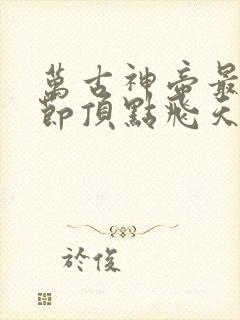 萬古神帝最
節頂點飛天
於俊